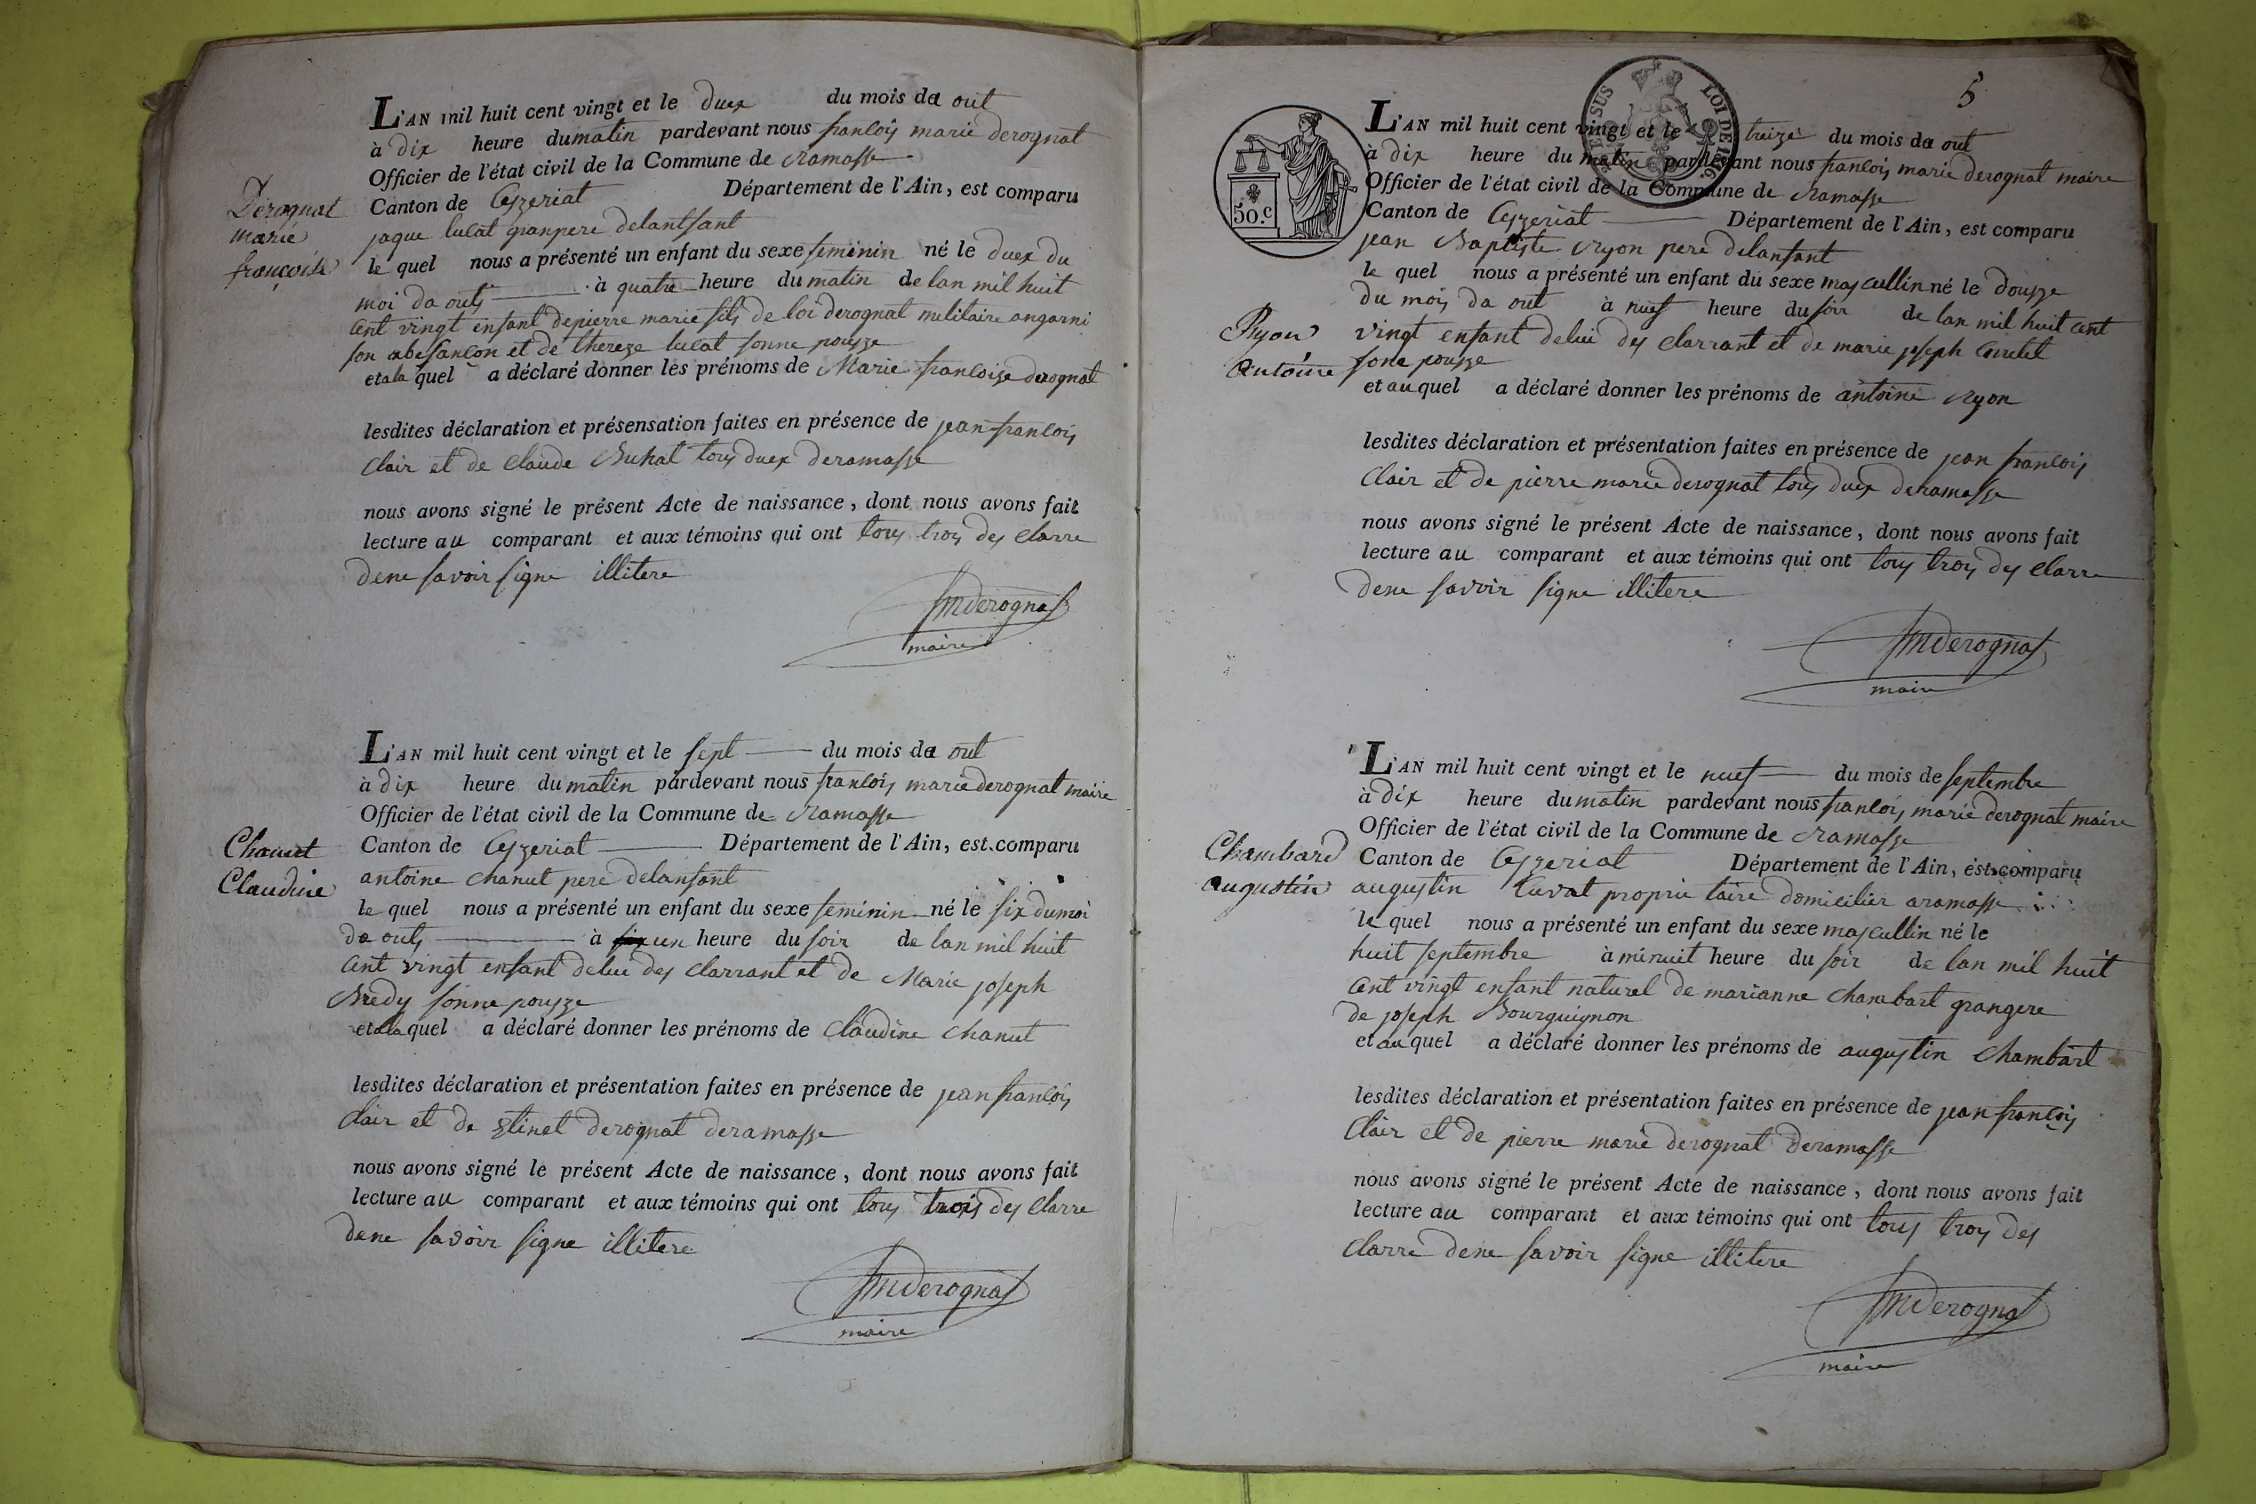 L'AN mil huit cent vingt et le duex du mois da out
à dix heure du matin pardevant nous francois marie derognat
Officier de l'état civil de la Commune de ramasse
Canton de Ceyzeriat Département de l'Ain, est comparu
Derognat
marie
françoise
jaque lucat granpere delantfant
le quel nous a présenté un enfant du sexe feminin né le duex du
moi da outs à quatre heure du matin de lan mil huit
cent vingt enfant depierre marie fils de loi derognat militaire angarni
son abesancon et de thereze lucat sonne pouze
et a la quel a déclaré donner les prénoms de Marie francoise derognat
lesdites déclaration et présensation faites en présence de jean francois
clair et de claude Buhat tous duex deramasse
nous avons signé le présent Acte de naissance, dont nous avons fait
lecture au comparant et aux témoins qui ont tous trois des clarre
dene savoir signe illitere
fmderognat
maire
L'AN mil huit cent vingt et le sept du mois da out
à dix heure du matin pardevant nous francois marie derognat maire
Officier de l'état civil de la Commune de ramasse
Canton de Ceyzeriat Département de l'Ain, est comparu
Chanut
Claudine
antoine chanut pere delanfant
le quel nous a présenté un enfant du sexe feminin né le six du moi
da outs à un heure du soir de lan mil huit
cent vingt enfant delui des clarrant et de Marie joseph
Bredy sonne pouze
et a la quel a déclaré donner les prénoms de claudine chanut
lesdites déclaration et présentation faites en présence de jean francois
clair et de derognat deramasse
nous avons signé le présent Acte de naissance, dont nous avons fait
lecture au comparant et aux témoins qui ont tous trois des clarre
dene savoir signe illitere
fmderognat
maire
5
50.C
LOI DE 1816.
L'AN mil huit cent vingt et le treize du mois da out
à dix heure du matin pardevant nous francois marie derognat maire
Officier de l'état civil de la Commune de ramasse
Canton de Ceyzeriat Département de l'Ain, est comparu
jean Baptiste ryon pere delanfant
le quel nous a présenté un enfant du sexe mascullin né le douze
du mois da out à nuef heure du soir de lan mil huit cent
Ryon
Antoine
vingt enfant delui des clarrant et de marie joseph
sone pouze
et au quel a déclaré donner les prénoms de antoine ryon
lesdites déclaration et présentation faites en présence de jean francois
clair et de pierre marie derognat tous duex deramasse
nous avons signé le présent Acte de naissance, dont nous avons fait
lecture au comparant et aux témoins qui ont tous trois des clarre
dene savoir signe illitere
fmderognat
maire
L'AN mil huit cent vingt et le nuef du mois de septembre
à dix heure du matin pardevant nous francois marie derognat maire
Officier de l'état civil de la Commune de ramasse
Canton de Ceyzeriat Département de l'Ain, est comparu
Chambard
augustin
augustin proprietaire domicilier aramasse
le quel nous a présenté un enfant du sexe mascullin né le
huit septembre à minuit heure du soir de lan mil huit
cent vingt enfant naturel de marianne chambart grangere
de joseph Bourguignon
et au quel a déclaré donner les prénoms de augustin chambart
lesdites déclaration et présentation faites en présence de jean françois
clair et de pierre marie derognat deramasse
nous avons signé le présent Acte de naissance, dont nous avons fait
lecture au comparant et aux témoins qui ont tous trois des
clarre dene savoir signe illitere
fmderognat
maire